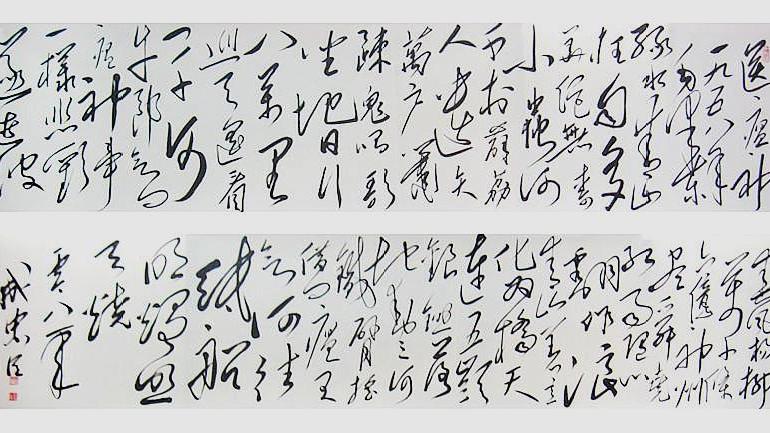 送瘟神
一九五八年
绿水青山
枉自多
華佗無奈
小虫何
千村薜荔
人遗矢
萬户萧
疎鬼唱歌
坐地日行
八萬里
巡天遥看
一千河
牛郎欲问
瘟神事
一樣悲歡
逐逝波
春風楊柳
萬千條
六億神州
盡舜尧
红雨随心
翻作浪
青山着意
化为橋天
連五嶺
銀鋤落
地動三河
鐵臂摇
借问瘟君
欲何往
紙船
明燭照
天燒
零八年